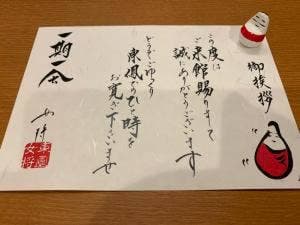 御挨拶
この度は
ご来館賜りまして
誠にありがとうございます
どうぞごゆっくり
東鳳でのひと時を
お寛ぎ下さいませ
一期一会
女将